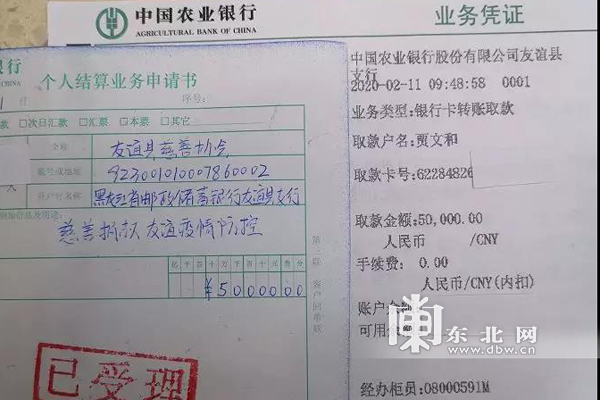 中国农业银行
AGRICULTURAL BANK OF CHINA
业务凭证
银行
个人结算业务申请书
序号:
次日汇款 汇票 本票 其它
全称
友谊县慈善协会
账号或地址
923001010007860002
开户行名称
黑龙江省邮政储蓄银行友谊县支行
附加信息及用途:
慈善捐款友谊疫情防控
亿千百十万千百十元角分
¥5000000
已受理
中国农业银行股份有限公司友谊县
支行
2020-02-11 09:48:58 0001
业务类型:银行卡转账取款
取款户名:贾文和
取款卡号:62284826
取款金额:50,000.00
人民币 /CNY
手续费: 0.00
人民币/CNY(内扣)
账户
可用
东北网
www.dbw.cn
经办柜员:08000591M